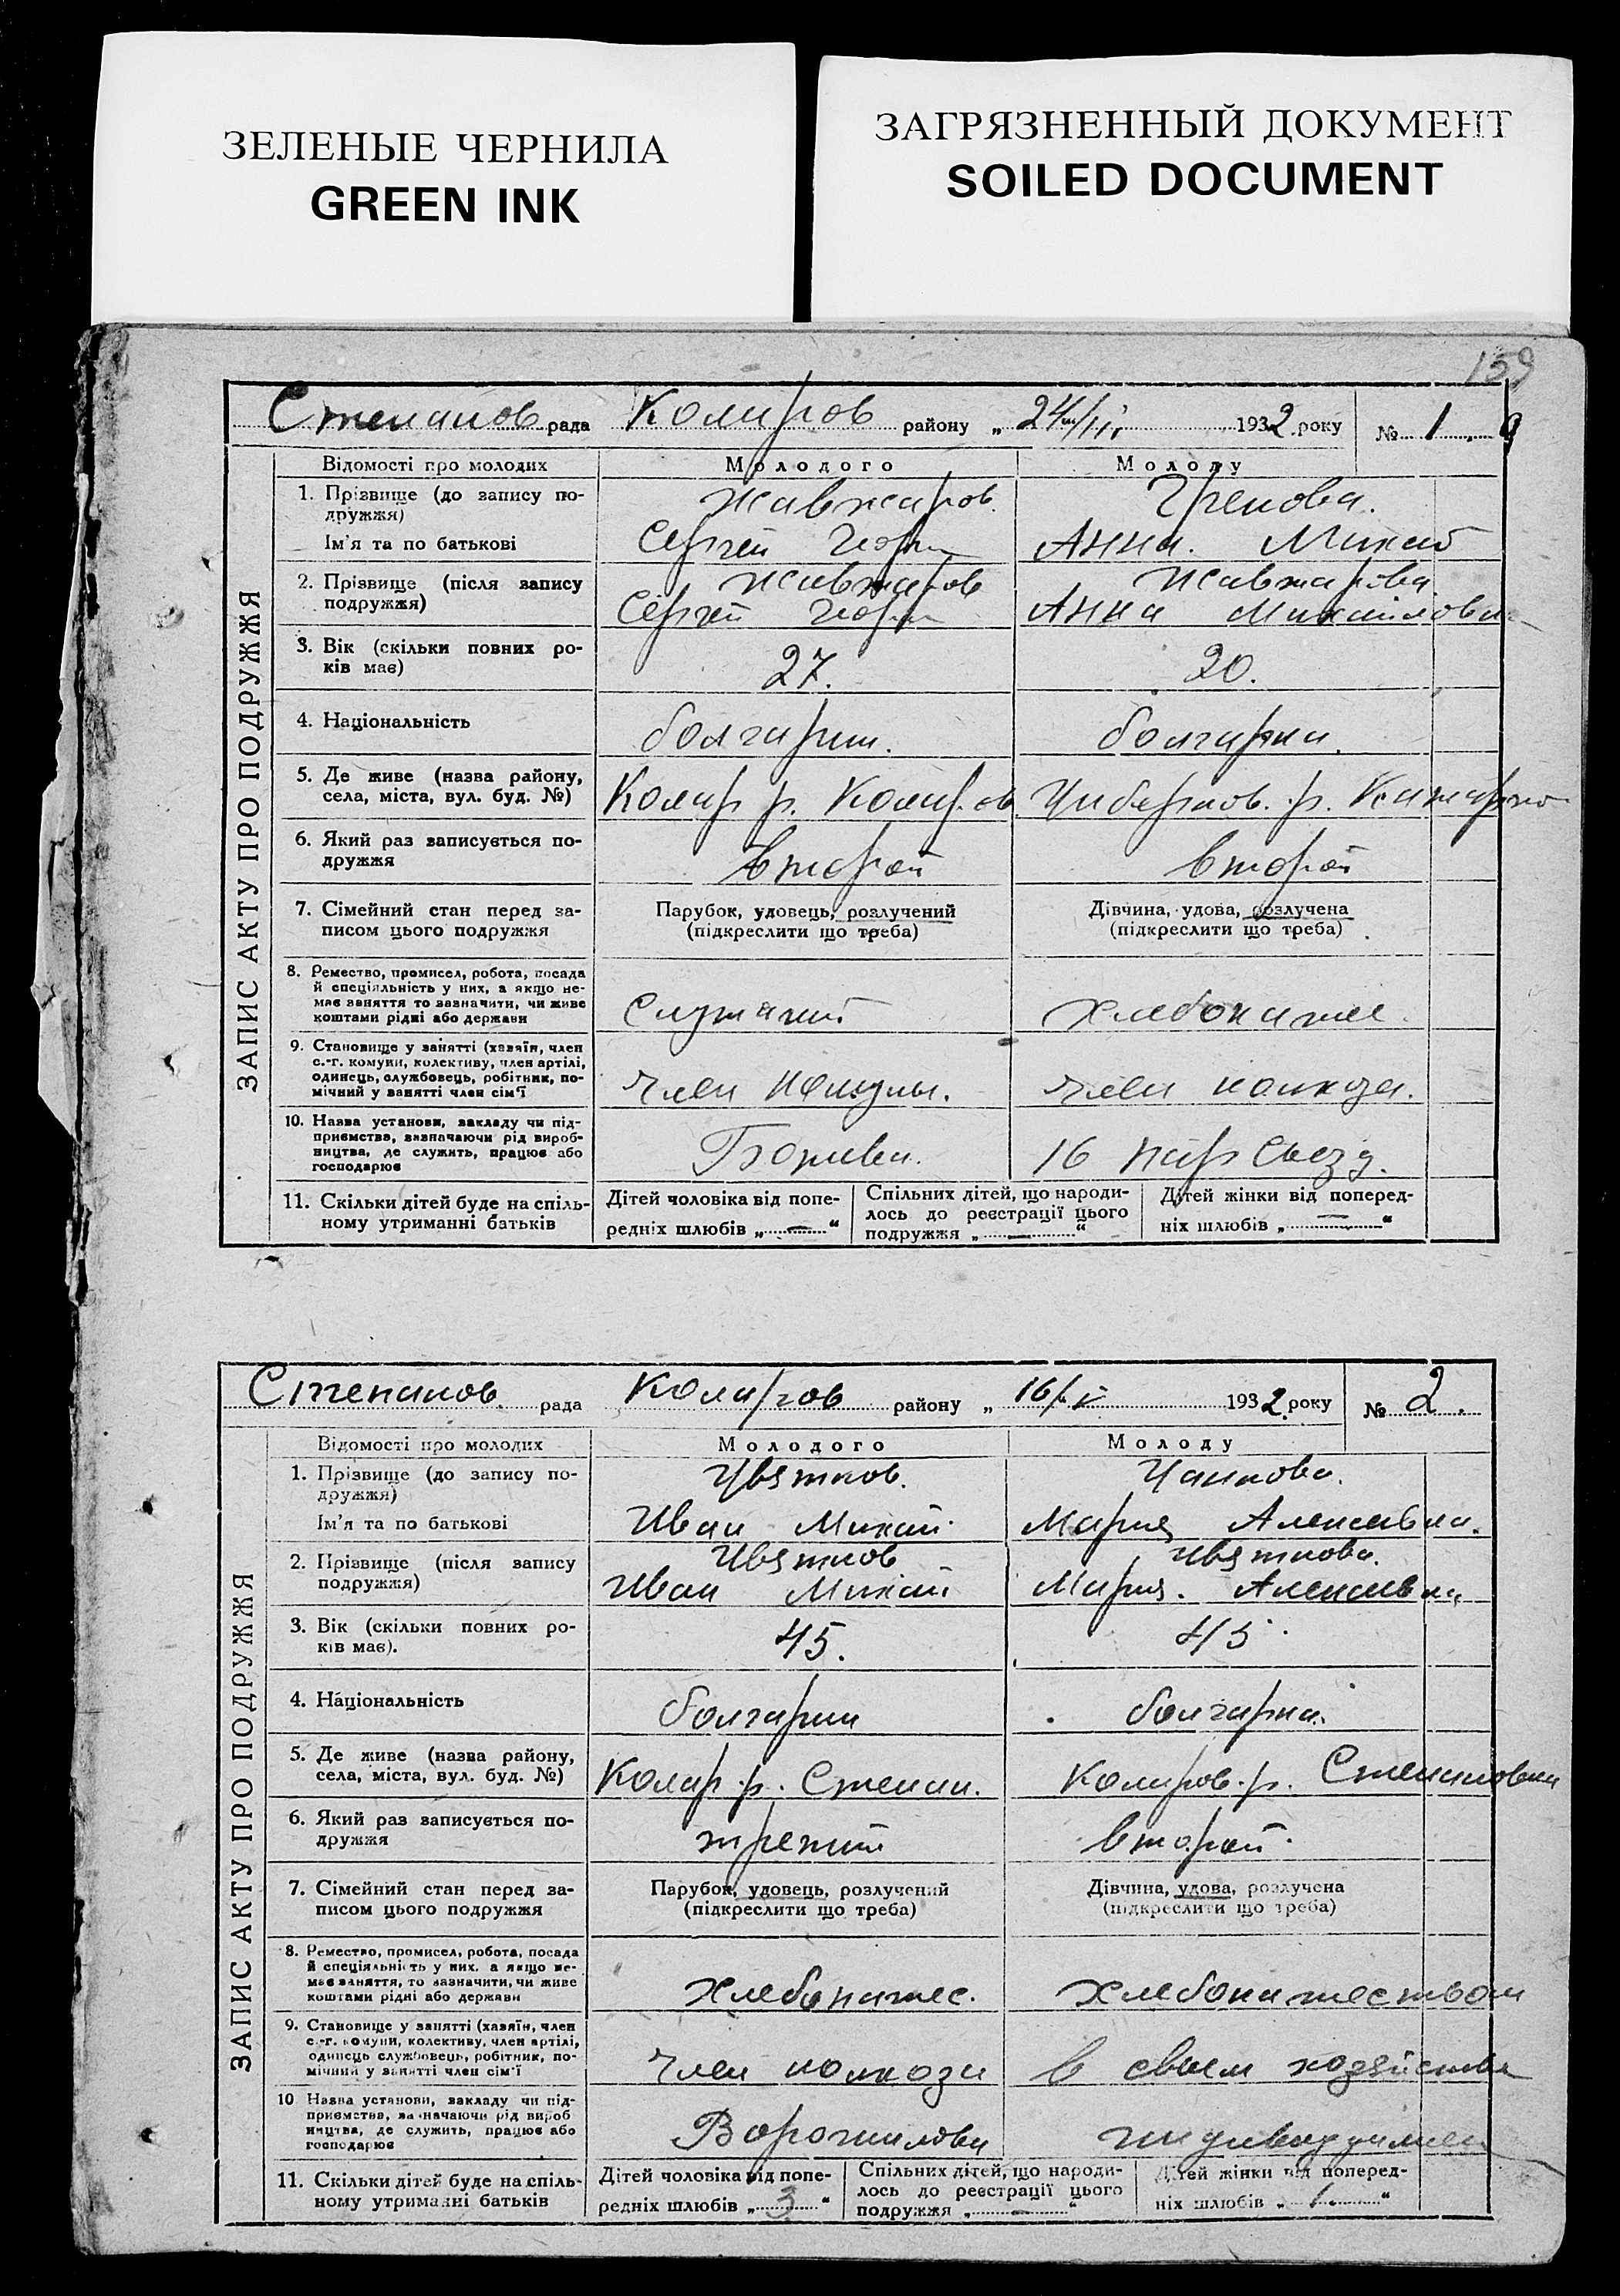 ЗЕЛЕНЫЕ ЧЕРНИЛА
GREEN INK
ЗАГРЯЗНЕННЫЙ ДОКУМЕНТ
SOILED DOCUMENT
159
Степанов рада Коларов району „ 24/III 1932 року № 1
ЗАПИС АКТУ ПРО ПОДРУЖЖЯ
Відомості про молодих Молодого Молоду
1. Прізвище (до запису по- Жавжаров. Грекова.
дружжя)
Ім'я та по батькові Сергей Георги Анна. Михай
2. Прізвище (після запису Жавжаров Жавжарова
подружжя) Сергей Георги Анна Михайловна
3. Вік (скільки повних ро-
ків має) 27. 20.
4. Національність болгарин. болгарка.
5. Де живе (назва району,
села, міста, вул. буд. №) Колар р. Колар. ов
6. Який раз записується по-
дружжя второй второй
7. Сімейний стан перед за- Парубок, удовець, розлучений Дівчина, удова, розлучена
писом цього подружжя (підкреслити що треба) (підкреслити що треба)
8. Ремество, промисел, робота, посада
й спеціяльність у них, а якщо не-
має заняття то зазначити, чи живе
коштами рідні або держави Служащий Хлебопашес.
9. Становище у занятті (хазяїн, член
с.-г. комуни, колективу, член артілі,
одинець, службовець, робітник, по-
мічний у занятті член сім'ї член комуны. член колхоза.
10. Назва установи, закладу чи під-
приємства, зазначаючи рід вироб-
ництва, де служить, працює або
господарює Ботева. 16 парт съезд.
11. Скільки дітей буде на спіль- Дітей чоловіка від попе- Спільних дітей, що народи- Дітей жінки від поперед-
ному утриманні батьків редніх шлюбів „ — “ лось до реєстрації цього ніх шлюбів „ — “
подружжя „ — “
Степанов рада Коларов району „ 16/V 1932 року № 2.
ЗАПИС АКТУ ПРО ПОДРУЖЖЯ
Відомості про молодих Молодого Молоду
1. Прізвище (до запису по- Цвятков. Чанкова.
дружжя)
Ім'я та по батькові Иван Михай Мария Алексевна.
2. Прізвище (після запису Цвятков Цвяткова.
подружжя) Иван Михай Мария. Алексевна
3. Вік (скільки повних ро-
ків має). 45. 45
4. Національність болгарин болгарка.
5. Де живе (назва району,
села, міста, вул. буд. №) Колар. р. Степан. Коларов. р. Степановка
6. Який раз записується по-
дружжя третий второй.
7. Сімейний стан перед за- Парубок, удовець, розлучений Дівчина, удова, розлучена
писом цього подружжя (підкреслити що треба) (підкреслити що треба)
8. Ремество, промисел, робота, посада
й спеціяльність у них, а якщо не-
має заняття, то зазначити, чи живе
коштами рідні або держави Хлебопашес. Хлебопашеством
9. Становище у занятті (хазяїн, член
с.-г. комуни, колективу, член артілі,
одинець службовець, робітник, по-
мічний у занятті член сім'ї член колхоза в своем хозяйстве
10 Назва установи, закладу чи під-
приємства, зазначаючи рід вироб
ництва, де служить, працює або
господарює Ворошилова
11. Скільки дітей буде на спіль- Дітей чоловіка від попе- Спільних дітей, що народи- Дітей жінки від поперед-
ному утриманні батьків редніх шлюбів „ 3 “ лось до реєстрації цього ніх шлюбів „ 1 “
подружжя „ — “